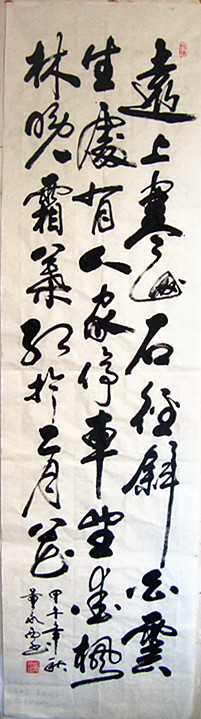 遠上寒山石徑斜白雲
生處有人家停車坐愛楓
林晚霜葉紅於二月花
甲午年秋